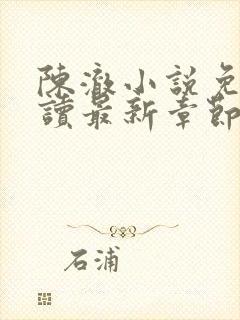 陳澈小說免
讀最新章節
石浦